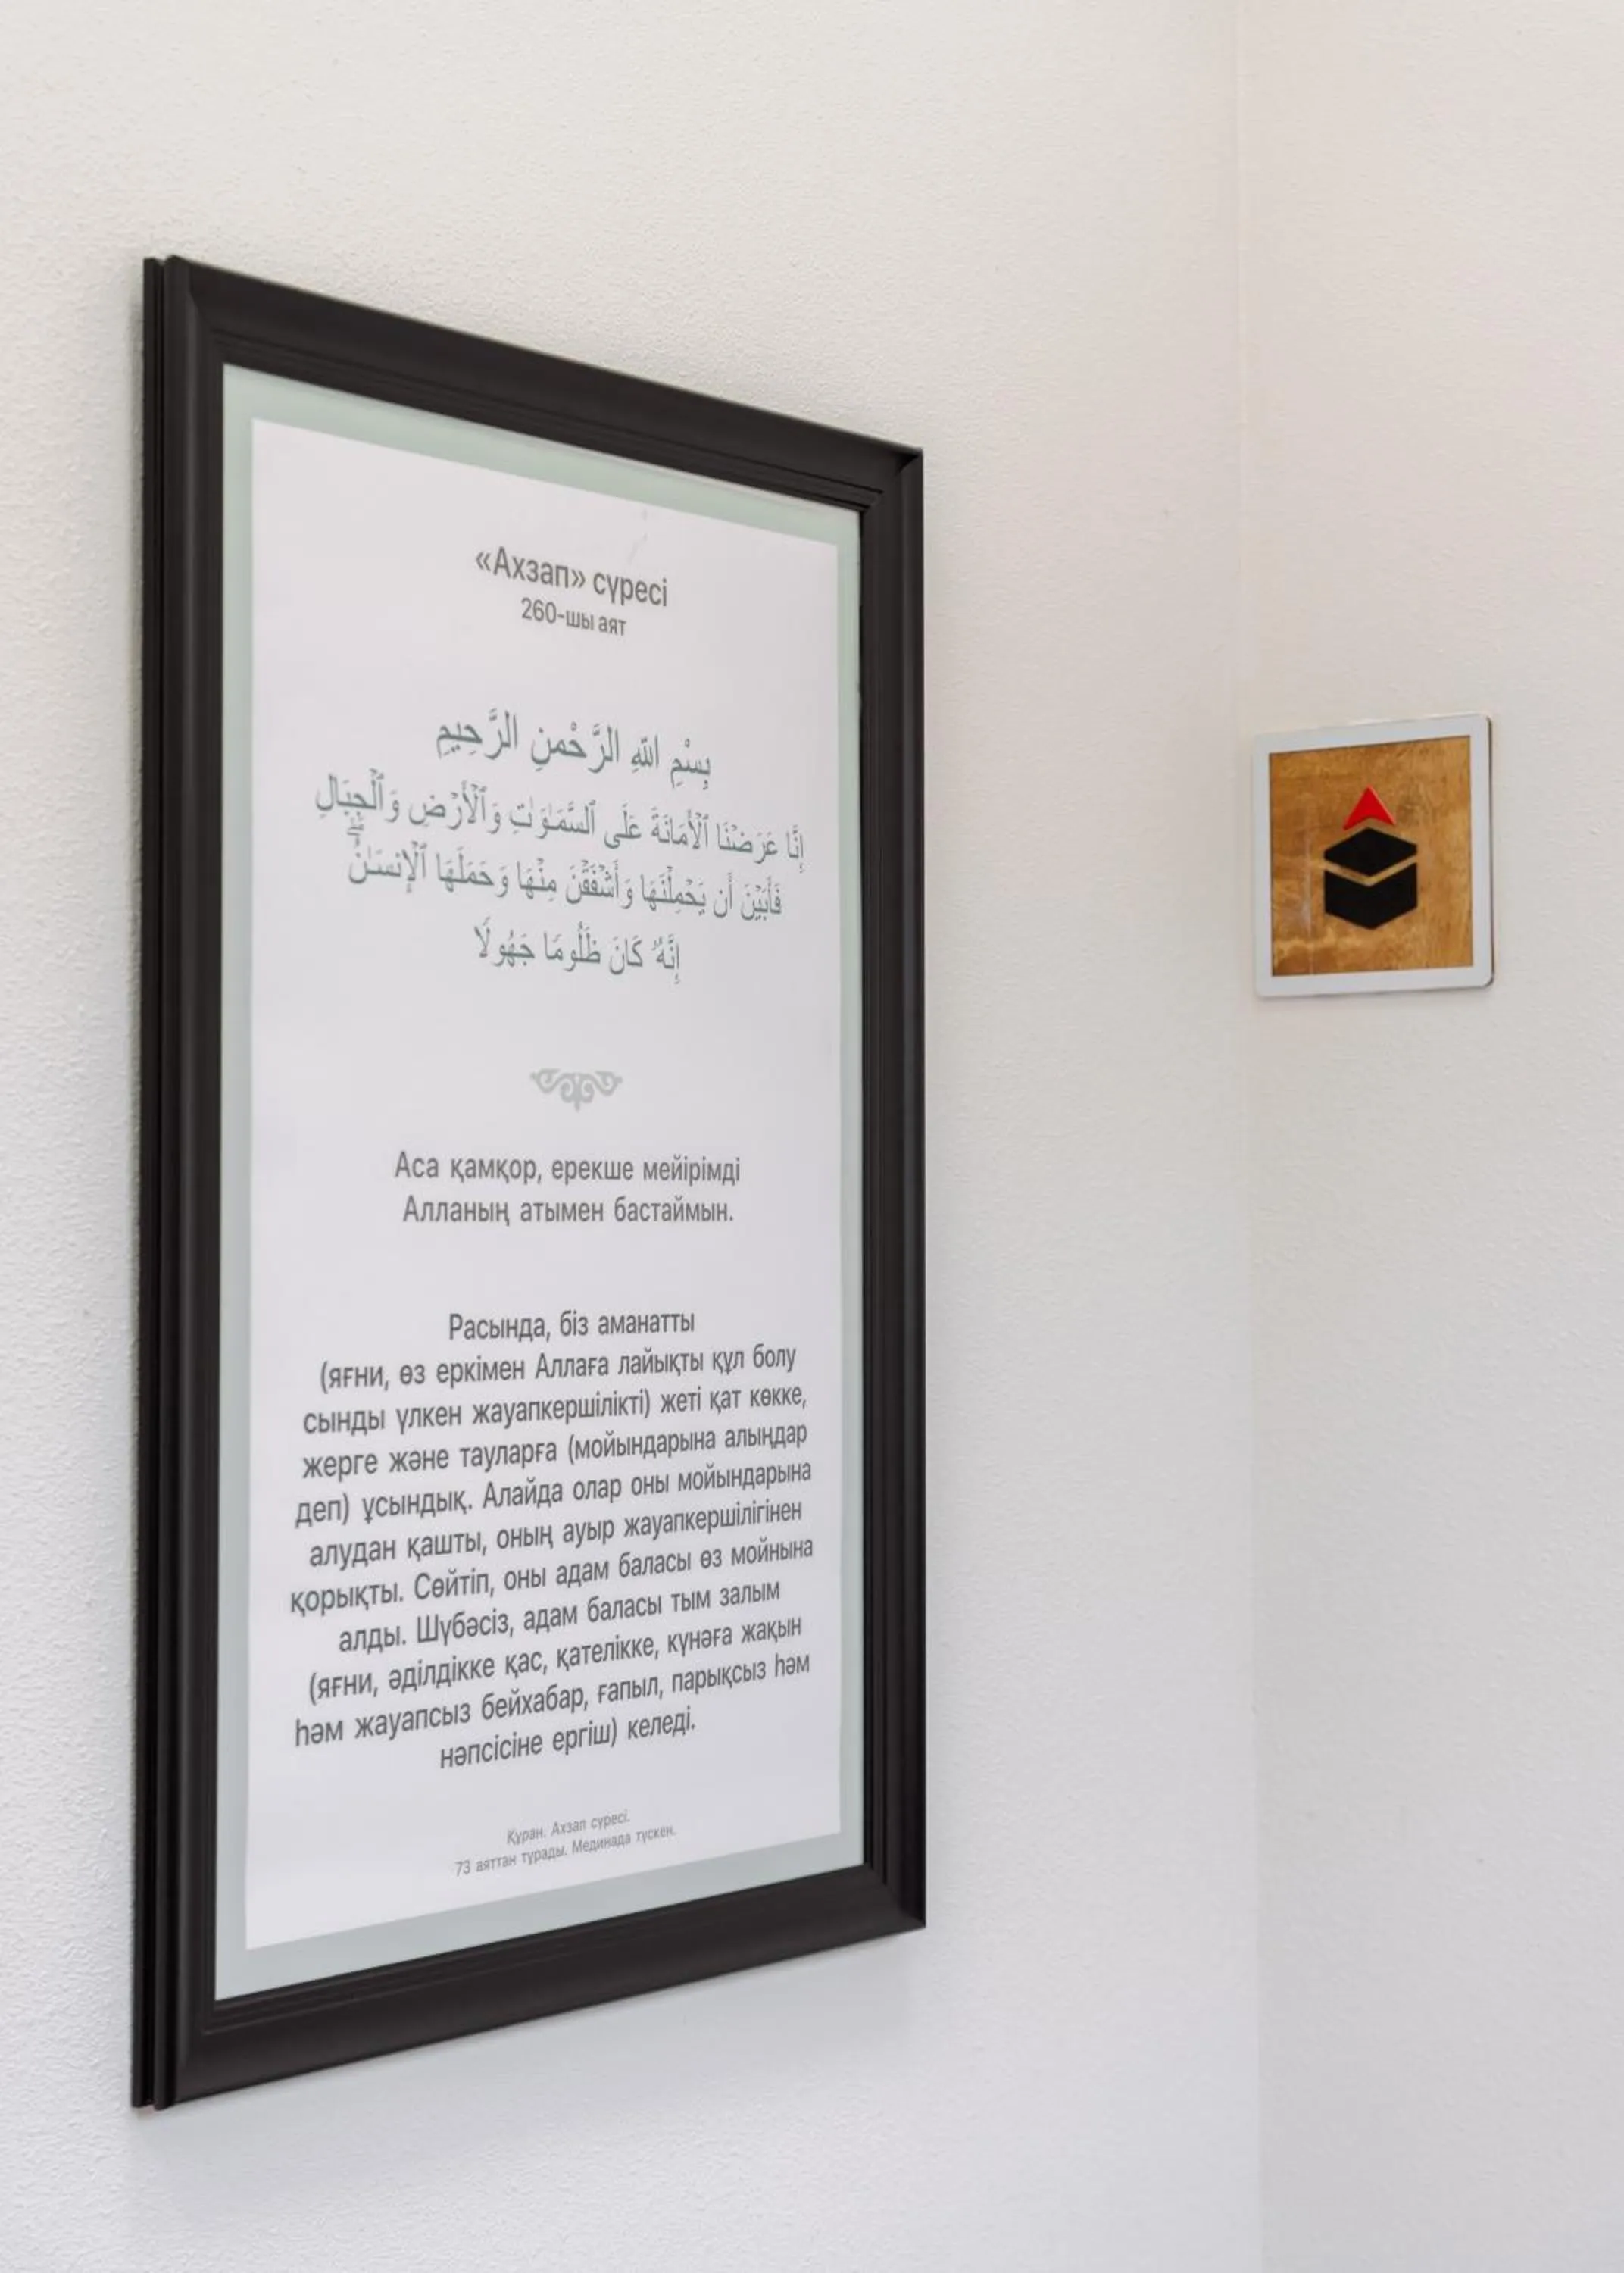 «Ахзап» сүресі
260-шы аят
بِسْمِ اللهِ الرَّحْمنِ الرَّحِيمِ
إِنَّا عَرَضْنَا ٱلْأَمَانَةَ عَلَى ٱلسَّمَـٰوَٰتِ وَٱلْأَرْضِ وَٱلْجِبَالِ
فَأَبَيْنَ أَن يَحْمِلْنَهَا وَأَشْفَقْنَ مِنْهَا وَحَمَلَهَا ٱلْإِنسَـٰنُ ۖ
إِنَّهُۥ كَانَ ظَلُومًا جَهُولًا
Аса қамқор, ерекше мейірімді
Алланың атымен бастаймын.
Расында, біз аманатты
(яғни, өз еркімен Аллаға лайықты құл болу
сынды үлкен жауапкершілікті) жеті қат көкке,
жерге және тауларға (мойындарына алыңдар
деп) ұсындық. Алайда олар оны мойындарына
алудан қашты, оның ауыр жауапкершілігінен
қорықты. Сөйтіп, оны адам баласы өз мойнына
алды. Шүбәсіз, адам баласы тым залым
(яғни, әділдікке қас, қателікке, күнәға жақын
һәм жауапсыз бейхабар, ғапыл, парықсыз һәм
нәпсісіне ергіш) келеді.
Құран. Ахзап сүресі.
73 аяттан тұрады. Мединада түскен.